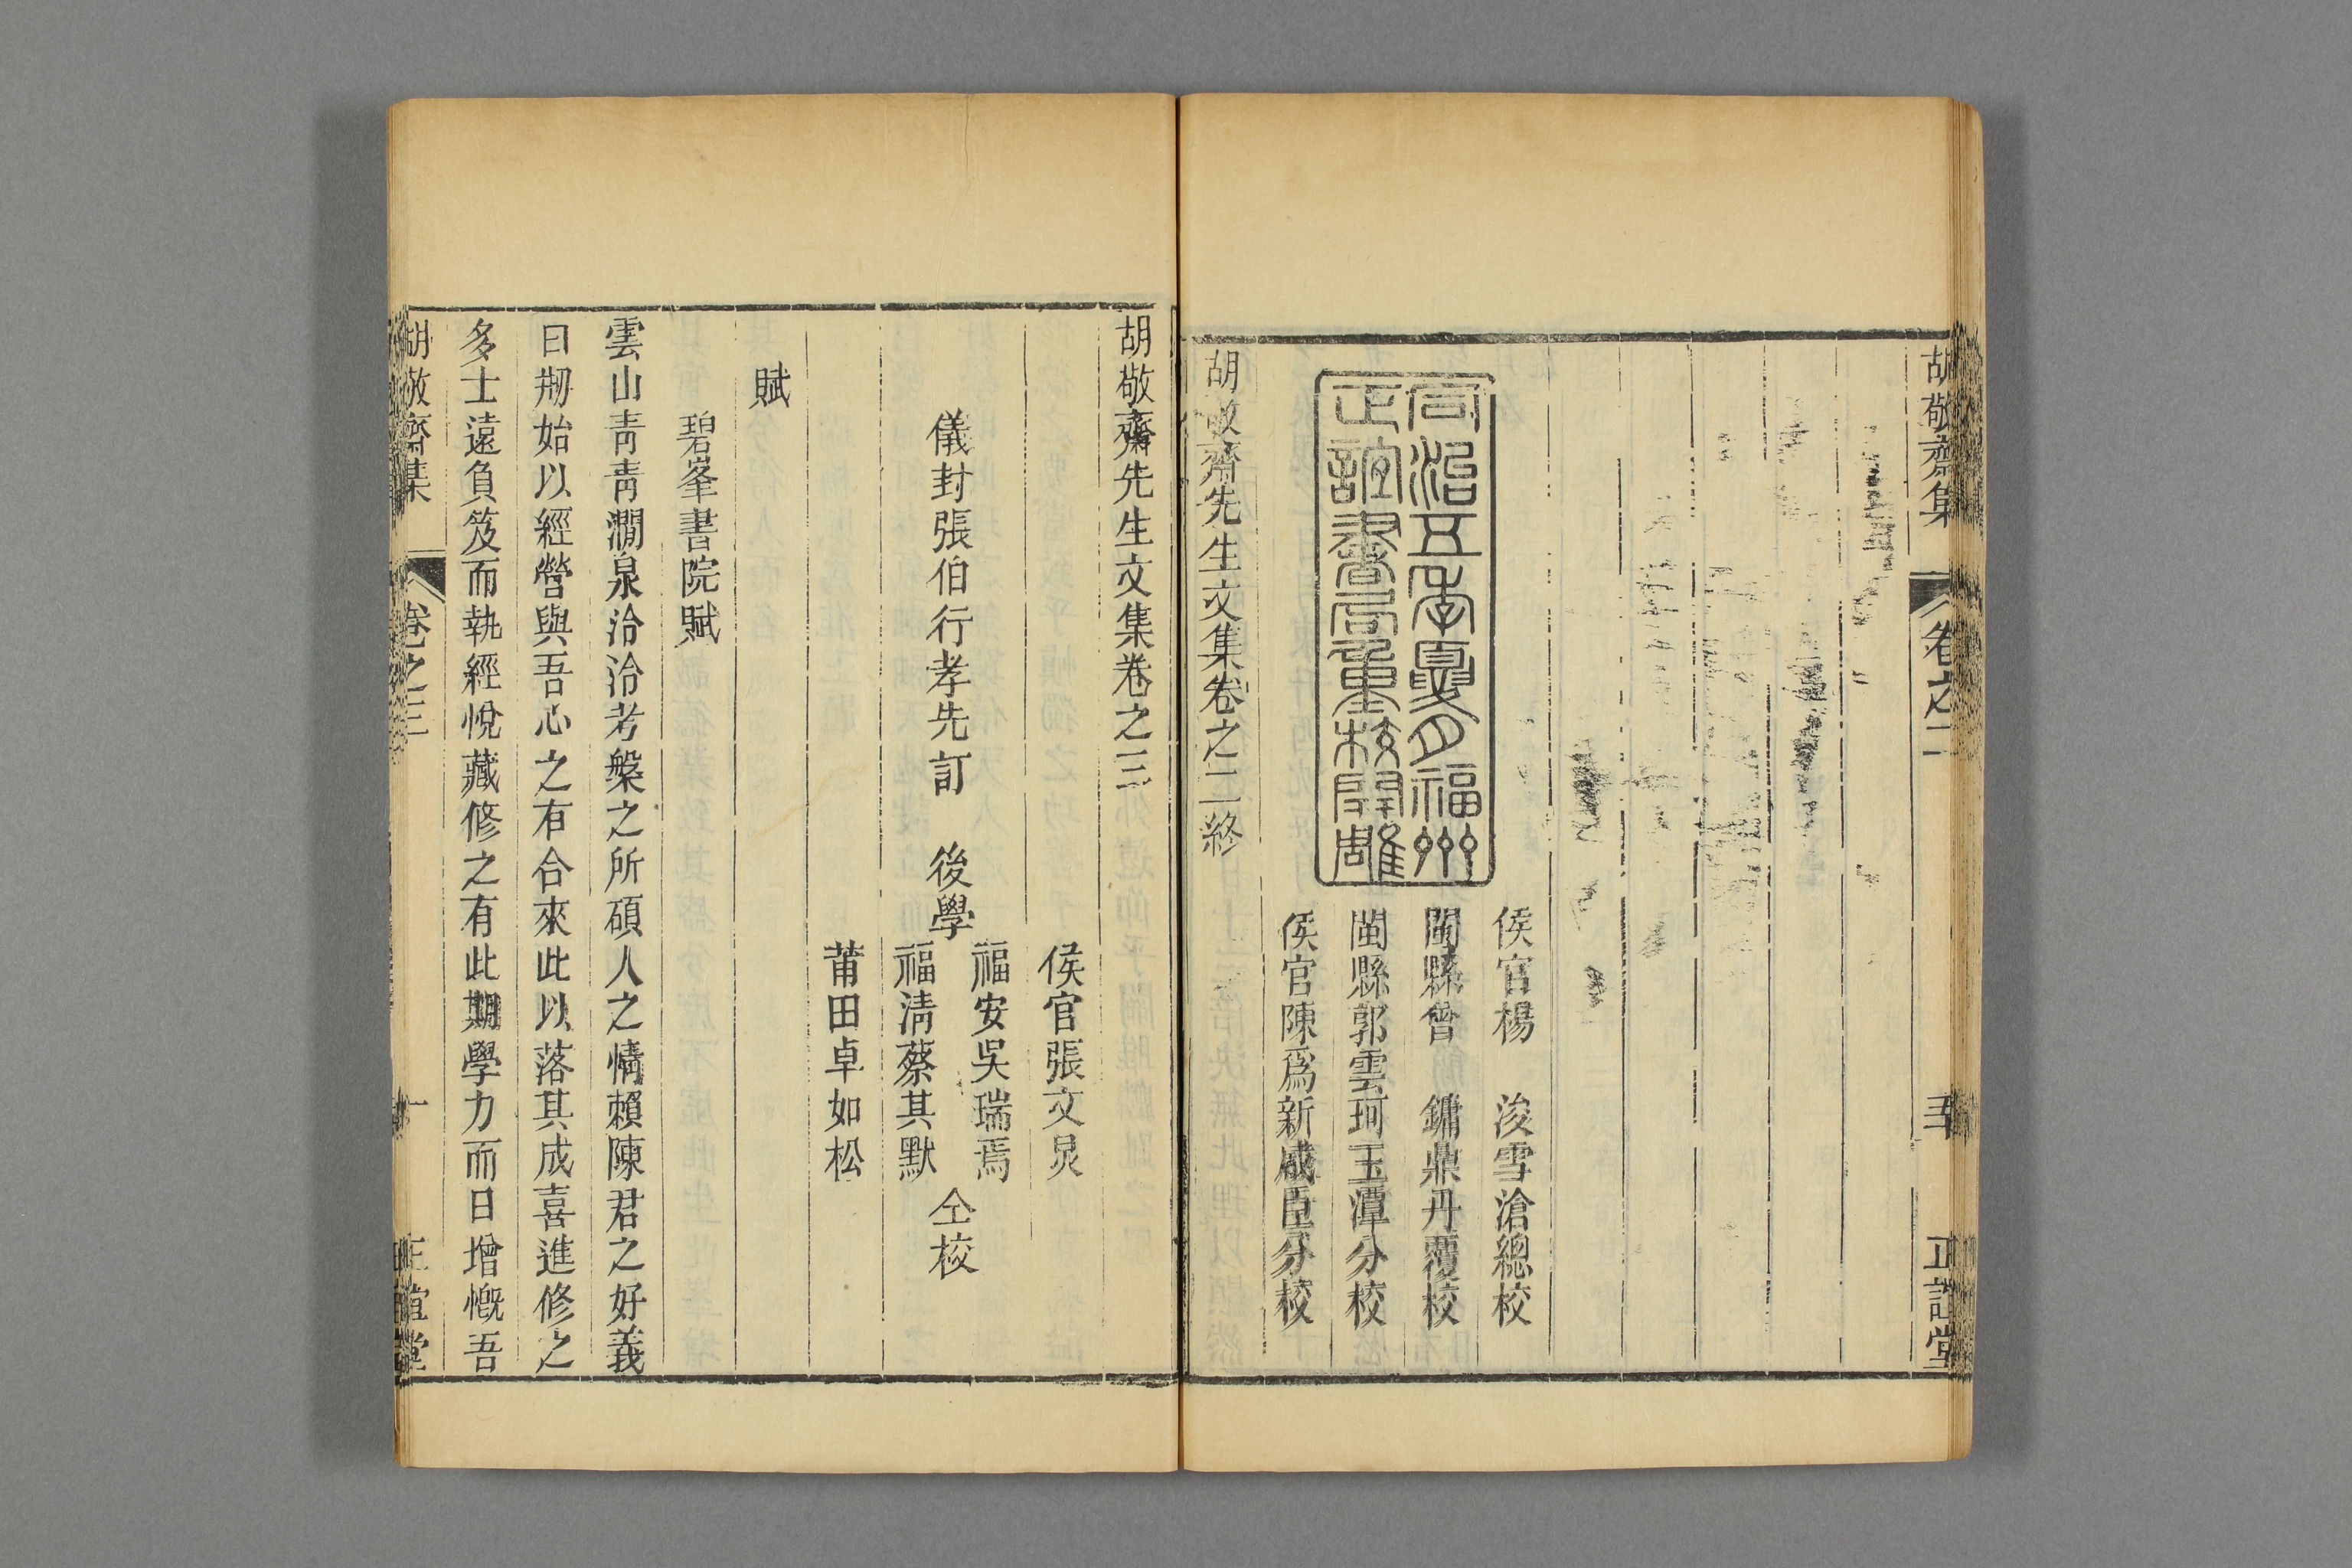 胡敬齋集
卷之二
正誼堂
同治五年夏月福州
正誼書局重校開雕
侯官楊 浚雪滄總校
閩縣曾 鏞鼎丹覆校
閩縣郭雲珂玉潭分校
侯官陳爲新咸臣分校
胡敬齋先生文集卷之二終
胡敬齋先生文集卷之三
儀封張伯行孝先訂 後學
侯官張文炅
福安吳瑞焉
福清蔡其默
莆田卓如松
仝校
賦
碧峯書院賦
雲山青青澗泉洽洽考槃之所碩人之情賴陳君之好義
日剏始以經營與吾心之有合來此以落其成喜進修之
多士遠負笈而執經悅藏修之有此期學力而日增慨吾
胡敬齋集
卷之三
一
正誼堂